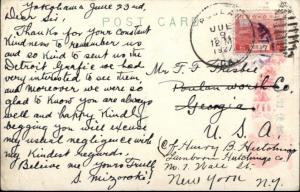 Yokohama June 23rd
POST CARD
Dear Sir;
Thanks for your constant
Kindness to remember us
and so kind to sent us the
Detroit Grafic we had
very intrested to see them
and moreover we were so
glad to know you are always
well and happy. Kindly
Begging you will excuse
my usual negligence with
my Kindest Regards.
Believe me Yours Truly
S. Mizoroki
JUL
12
192
Mr T. F.
Georgia
U. S. A.
C/o Henry B. Hutchings
Sanborn Hutchings Co
No. 7 St.
New York N.Y.